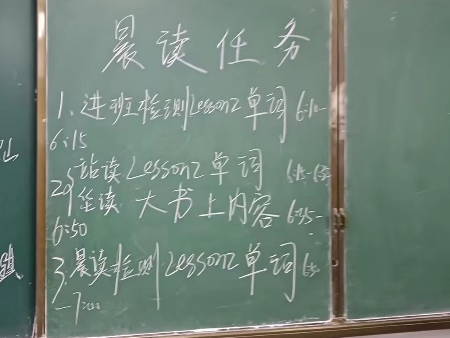 晨读任务
1、进班检测Lesson2单词6:10-
6:15
2 站读Lesson2单词 6:15-6:35
坐读 大书上内容 6:35-
6:50
3、晨读检测Lesson2单词6:50
-7:00